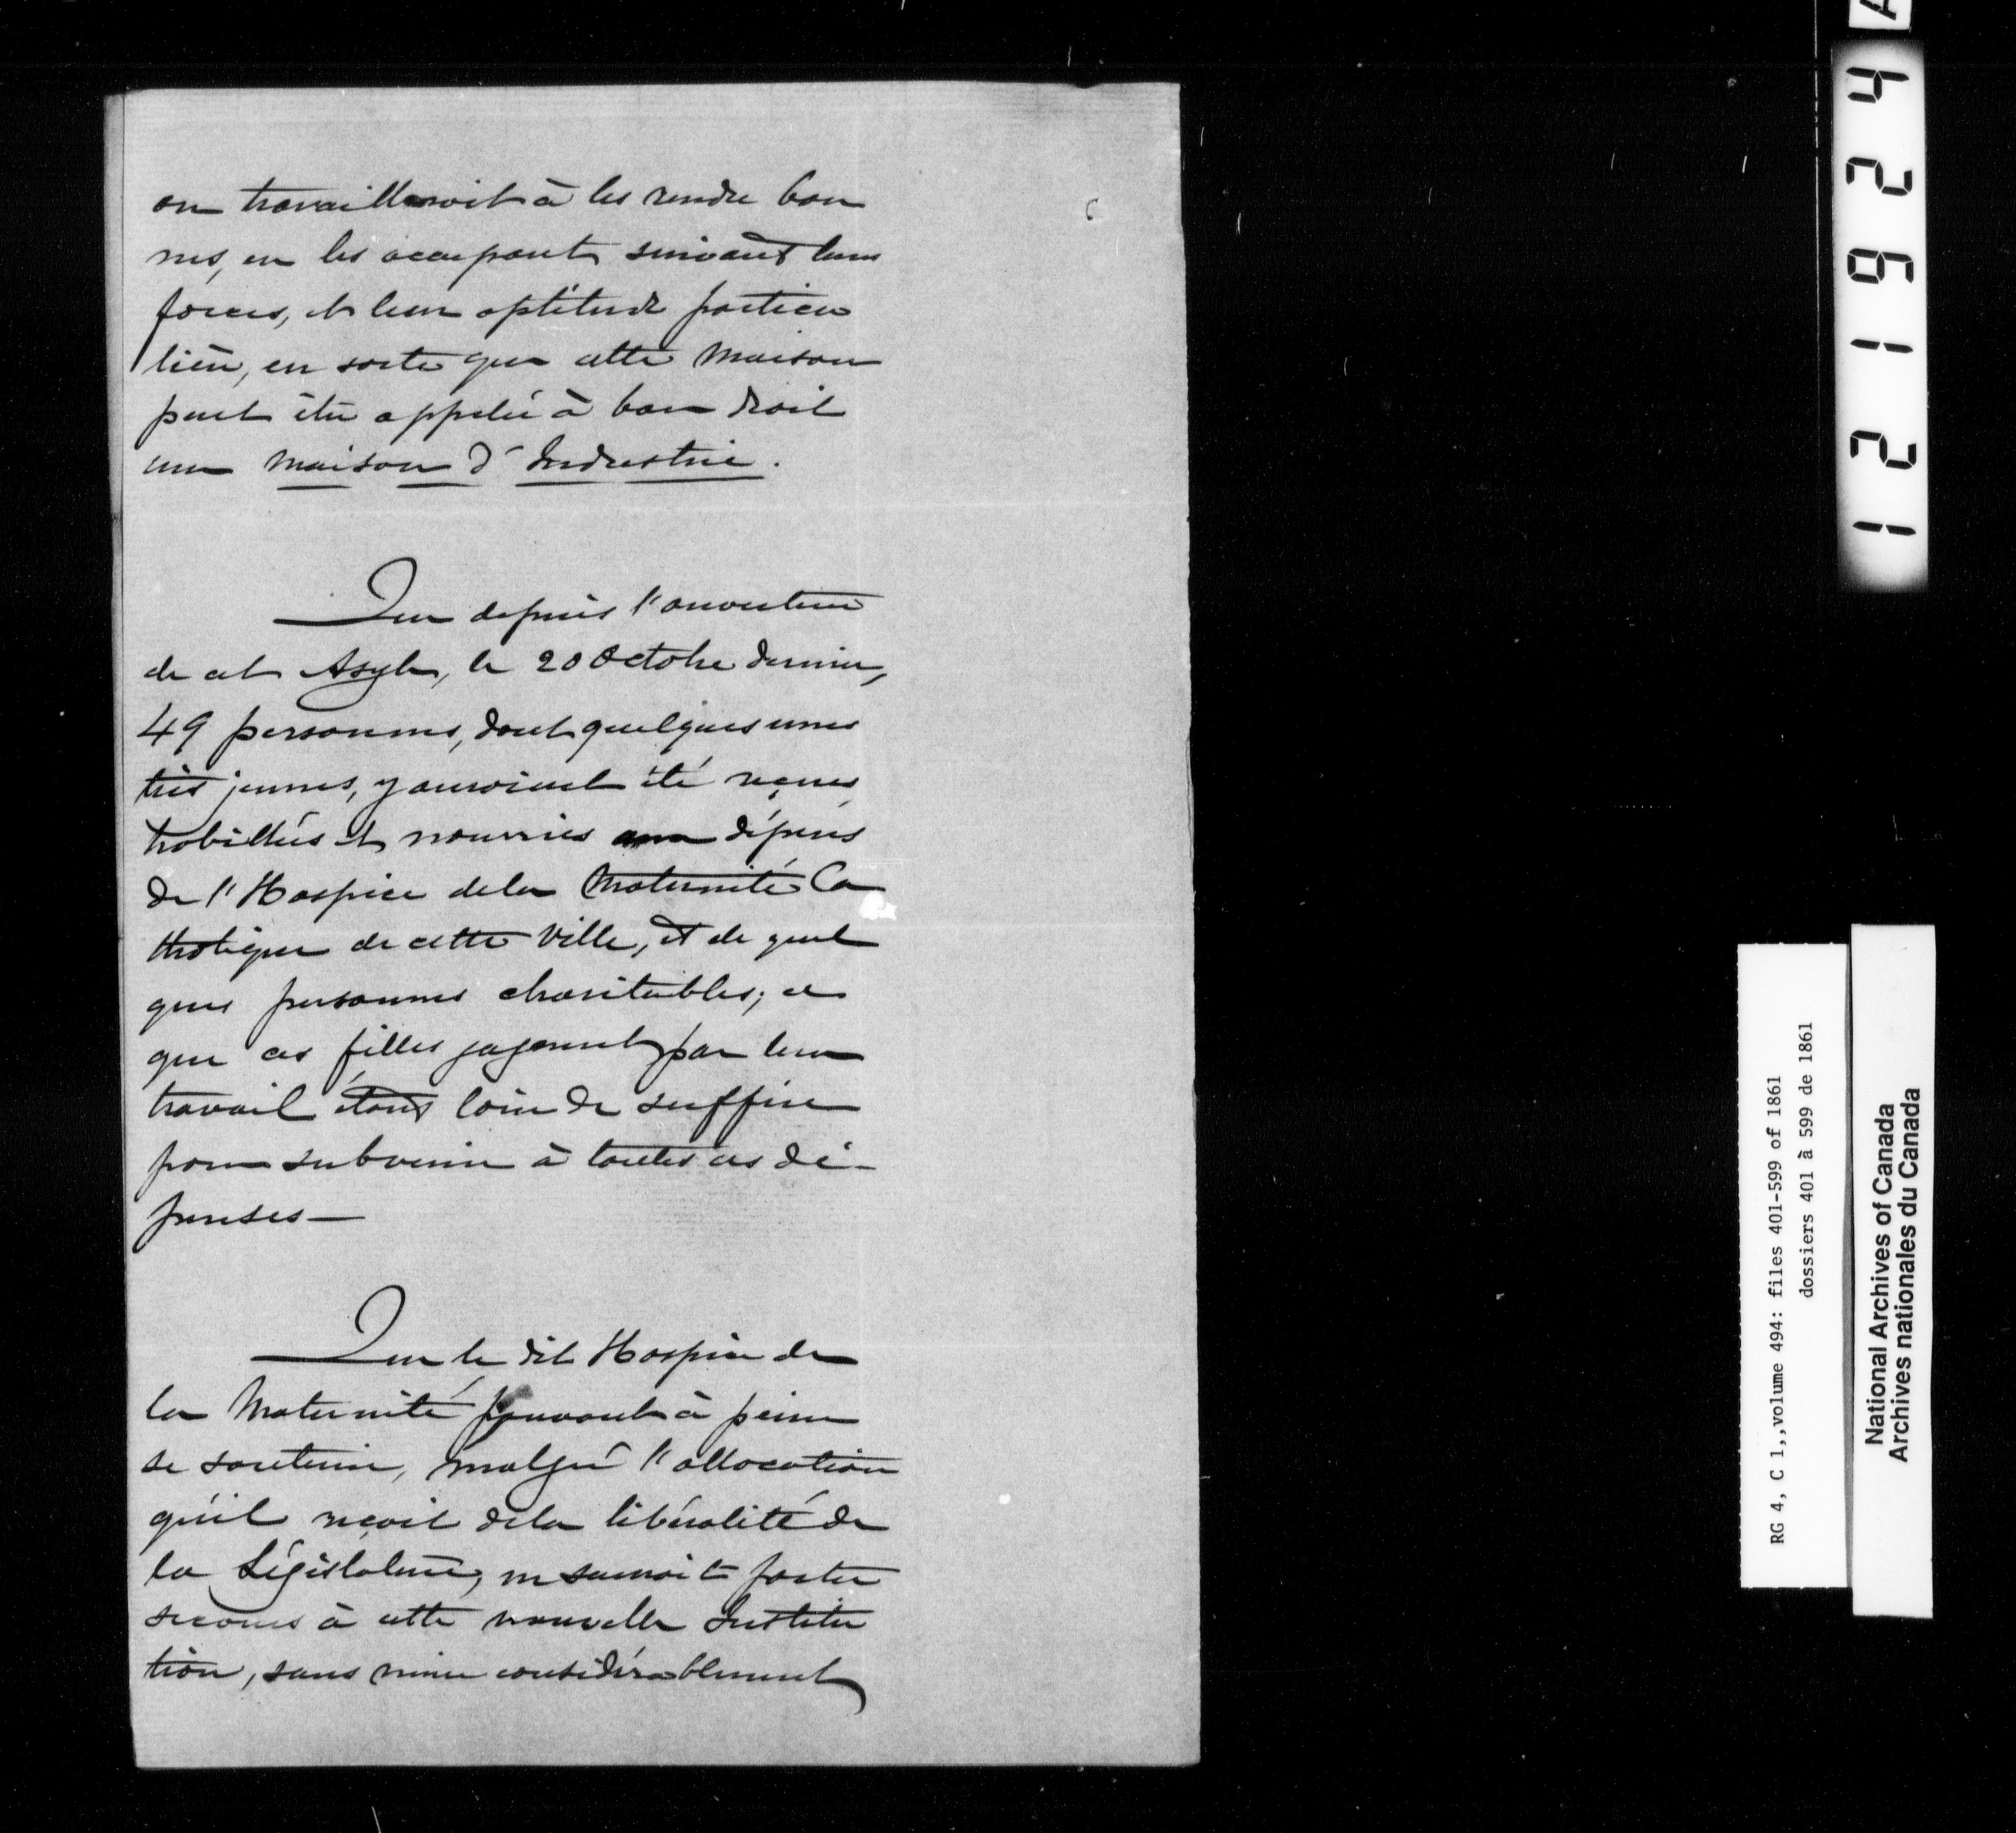 on travailleroit à les rendre bon
nes, en les occupant suivant leurs
forces, et leur aptitude particu
lière, en sorte que cette maison
peut être appelée à bon droit
une Maison d'Industrie.
Que depuis l'ouverture
de cet Asyle, le 20 Octobre dernier,
49 personnes, dont quelques unes
très jeunes, y auroient été reçues
habillées et nourries aux dépens
de l'Hospice de la Maternité Ca
tholique de cette Ville, et de quel
ques personnes charitables; ce
que ces filles gagnent par leur
travail étant loin de suffire
pour subvenir à toutes ces dé-
penses—
Que le dit Hospice de
la Maternité pouvant à peine
se soutenir, malgré l'allocation
qu'il reçoit de la libéralité de
la Législature, ne sauroit porter
secours à cette nouvelle Institu
tion, sans nuire considérablement
A
121924
RG 4, C 1,,volume 494: files 401-599 of 1861
dossiers 401 à 599 de 1861
National Archives of Canada
Archives nationales du Canada